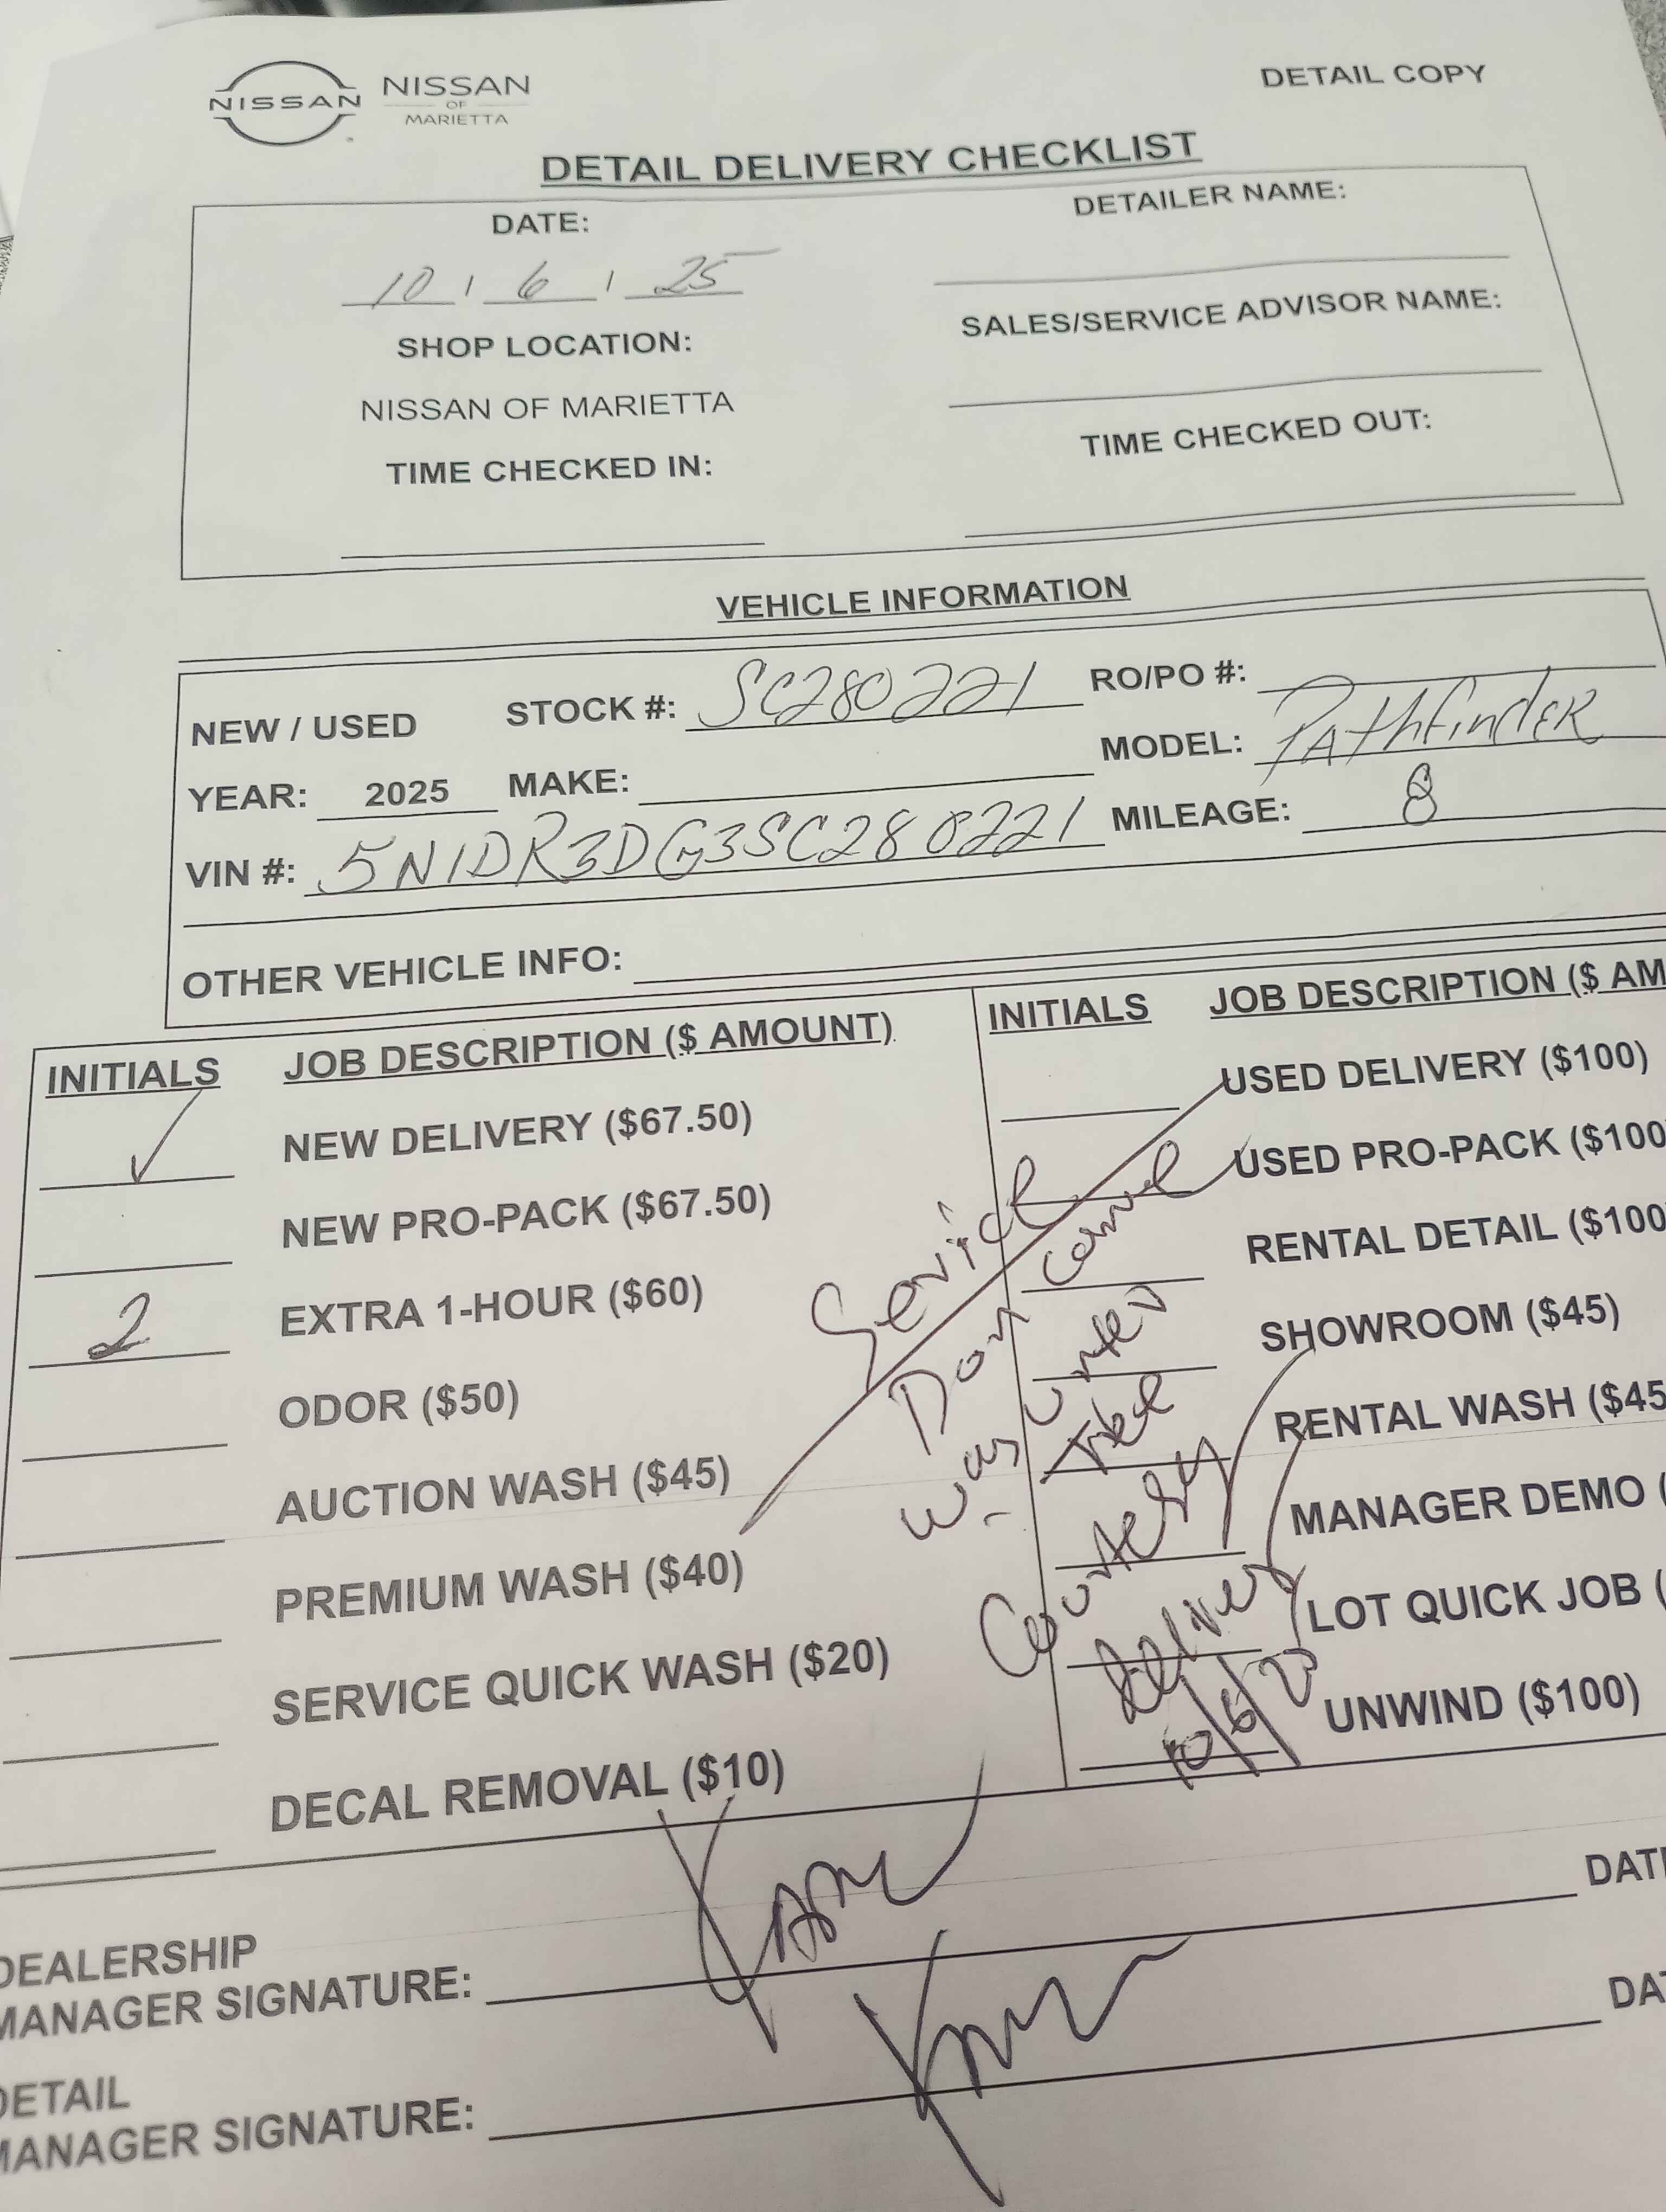 NISSAN
NISSAN
OF
MARIETTA
DETAIL COPY
DETAIL DELIVERY CHECKLIST
DATE:
10 / 6 / 25
SHOP LOCATION:
NISSAN OF MARIETTA
TIME CHECKED IN:
DETAILER NAME:
SALES/SERVICE ADVISOR NAME:
TIME CHECKED OUT:
VEHICLE INFORMATION
NEW / USED STOCK #: SC280221 RO/PO #:
YEAR: 2025 MAKE: MODEL: PAthfindER
VIN #: 5N1DR3DG3SC280221 MILEAGE: 8
OTHER VEHICLE INFO:
INITIALS JOB DESCRIPTION ($ AMOUNT)
NEW DELIVERY ($67.50)
NEW PRO-PACK ($67.50)
2 EXTRA 1-HOUR ($60)
ODOR ($50)
AUCTION WASH ($45)
PREMIUM WASH ($40)
SERVICE QUICK WASH ($20)
DECAL REMOVAL ($10)
INITIALS JOB DESCRIPTION ($ AM
USED DELIVERY ($100)
USED PRO-PACK ($100
RENTAL DETAIL ($100
SHOWROOM ($45)
RENTAL WASH ($45
MANAGER DEMO (
LOT QUICK JOB (
UNWIND ($100)
Courtesy
delivery
10/6/25
DEALERSHIP
MANAGER SIGNATURE: DATE
DETAIL
MANAGER SIGNATURE: DAT